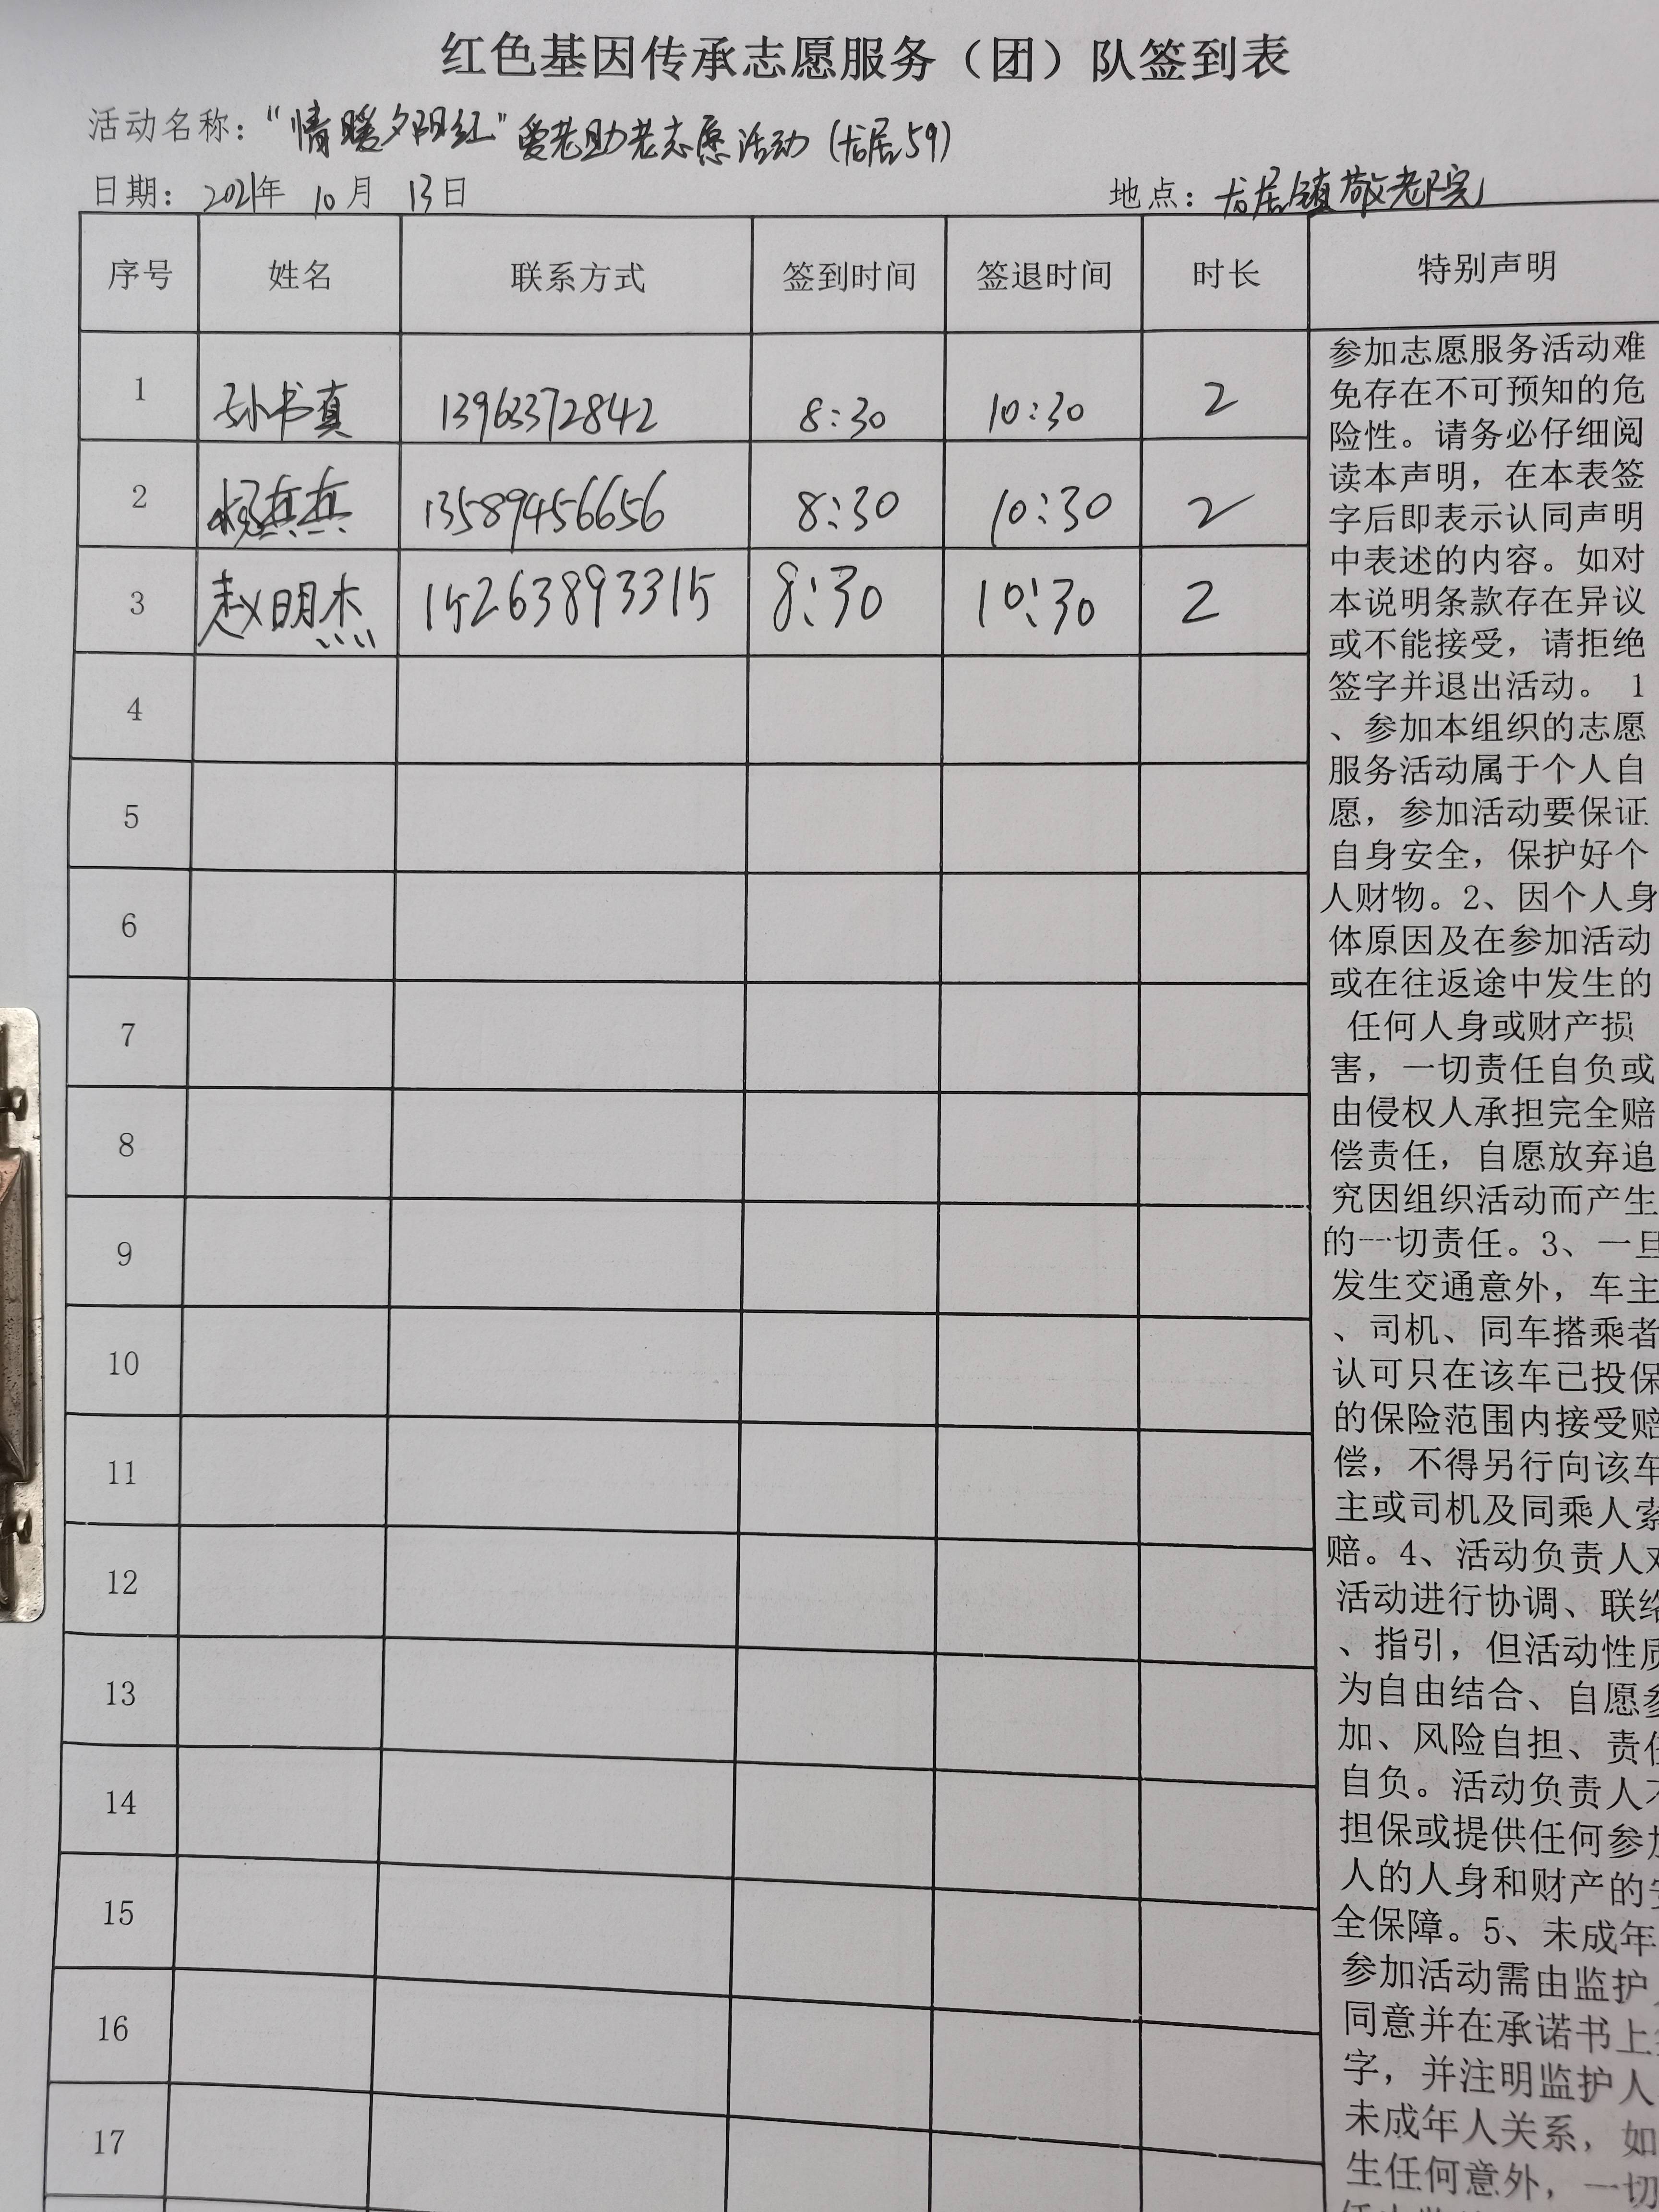 红色基因传承志愿服务（团）队签到表
活动名称："情暖夕阳红"爱老助老志愿活动（古居59）
日期：2021年 10月 13日 地点：古居镇敬老院
序号 姓名 联系方式 签到时间 签退时间 时长 特别声明
1 孙书真 13963372842 8:30 10:30 2
2 杨兵兵 13589456656 8:30 10:30 2
3 赵明杰 15263893315 8:30 10:30 2
4
5
6
7
8
9
10
11
12
13
14
15
16
17
参加志愿服务活动难
免存在不可预知的危
险性。请务必仔细阅
读本声明，在本表签
字后即表示认同声明
中表述的内容。如对
本说明条款存在异议
或不能接受，请拒绝
签字并退出活动。 1
、参加本组织的志愿
服务活动属于个人自
愿，参加活动要保证
自身安全，保护好个
人财物。2、因个人身
体原因及在参加活动
或在往返途中发生的
任何人身或财产损
害，一切责任自负或
由侵权人承担完全赔
偿责任，自愿放弃追
究因组织活动而产生
的一切责任。3、一旦
发生交通意外，车主
、司机、同车搭乘者
认可只在该车已投保
的保险范围内接受赔
偿，不得另行向该车
主或司机及同乘人索
赔。4、活动负责人对
活动进行协调、联络
、指引，但活动性质
为自由结合、自愿参
加、风险自担、责任
自负。活动负责人不
担保或提供任何参加
人的人身和财产的安
全保障。5、未成年
参加活动需由监护人
同意并在承诺书上签
字，并注明监护人
未成年人关系，如
生任何意外，一切